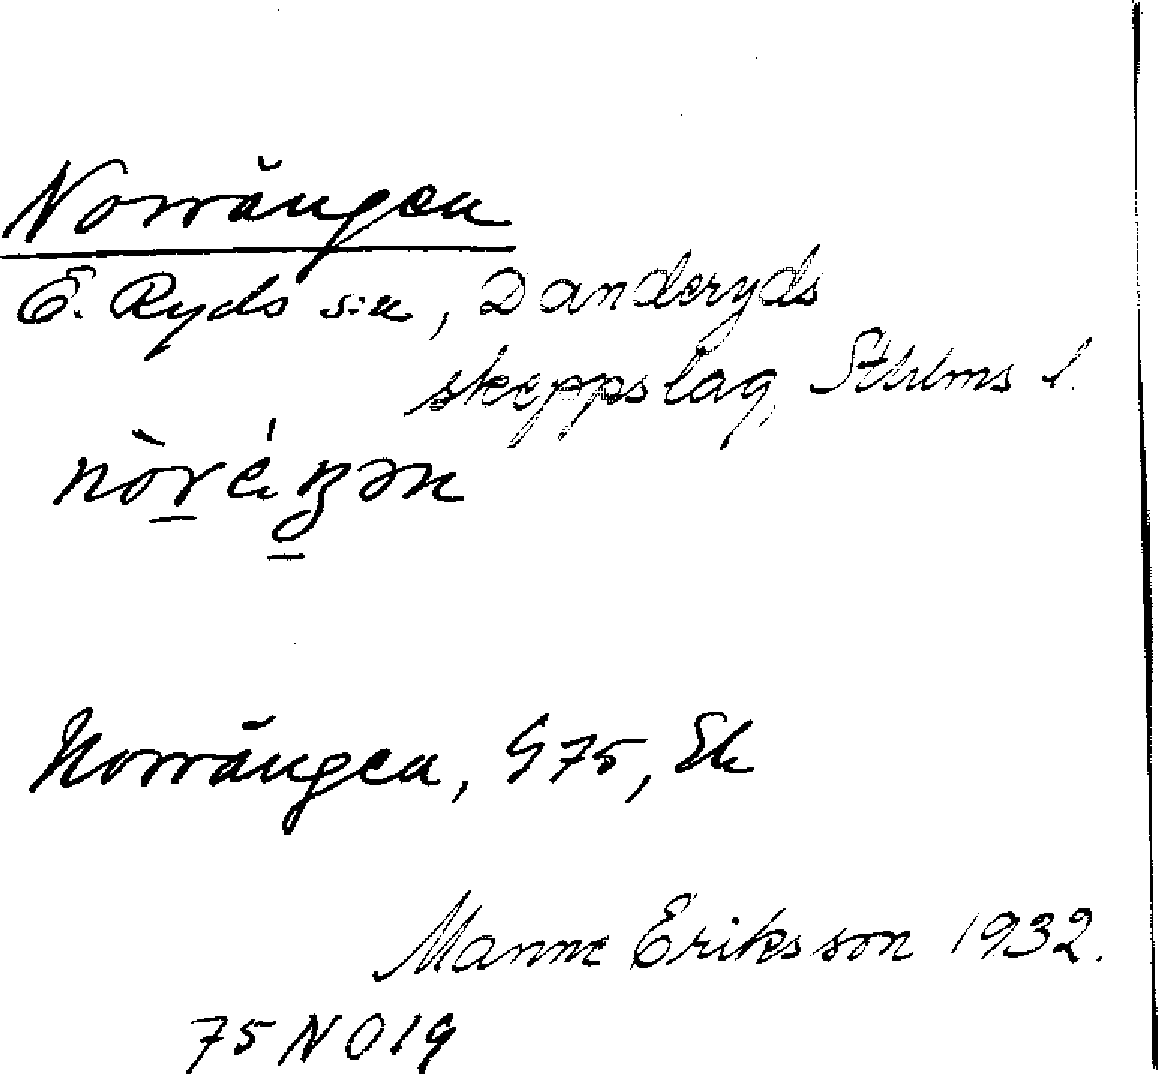 Norrängen
Ö. Ryds s:n, Danderyds
skeppslag, Sthlms l.
Norrängen, G75, Ek
Manne Eriksson 1932.
75 N O 19